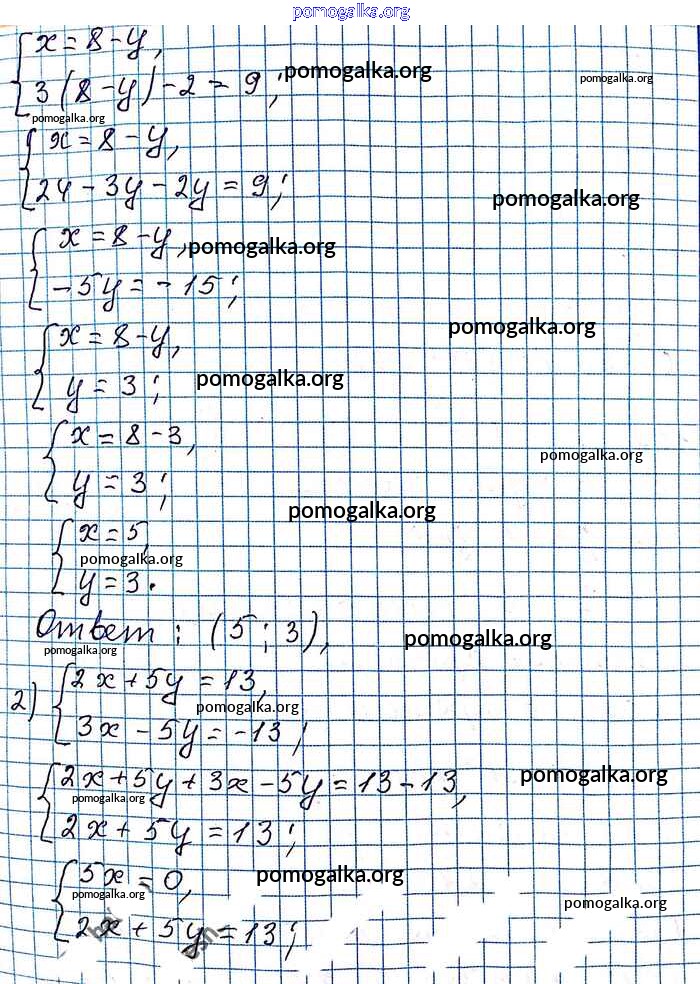 pomogalka.org
x = 8 - y,
3(8 - y) - 2 = 9; pomogalka.org pomogalka.org
pomogalka.org
x = 8 - y,
24 - 3y - 2y = 9; pomogalka.org
x = 8 - y, pomogalka.org
-5y = -15;
pomogalka.org
x = 8 - y,
y = 3; pomogalka.org
x = 8 - 3,
pomogalka.org
y = 3;
pomogalka.org
x = 5,
pomogalka.org
y = 3.
Ответ: (5; 3), pomogalka.org
pomogalka.org
2) 2x + 5y = 13,
pomogalka.org
3x - 5y = -13;
2x + 5y + 3x - 5y = 13 - 13, pomogalka.org
pomogalka.org
2x + 5y = 13;
5x = 0, pomogalka.org
pomogalka.org pomogalka.org
2x + 5y = 13;